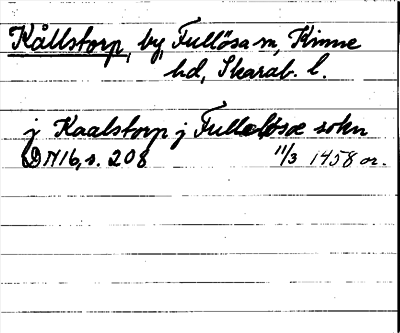 Kållstorp, by, Fullösa sn, Kinne
hd, Skarab. l.
j Kaalstorp j Fullaløsæ sokn
DN 16, s. 208 11/3 1458 or.